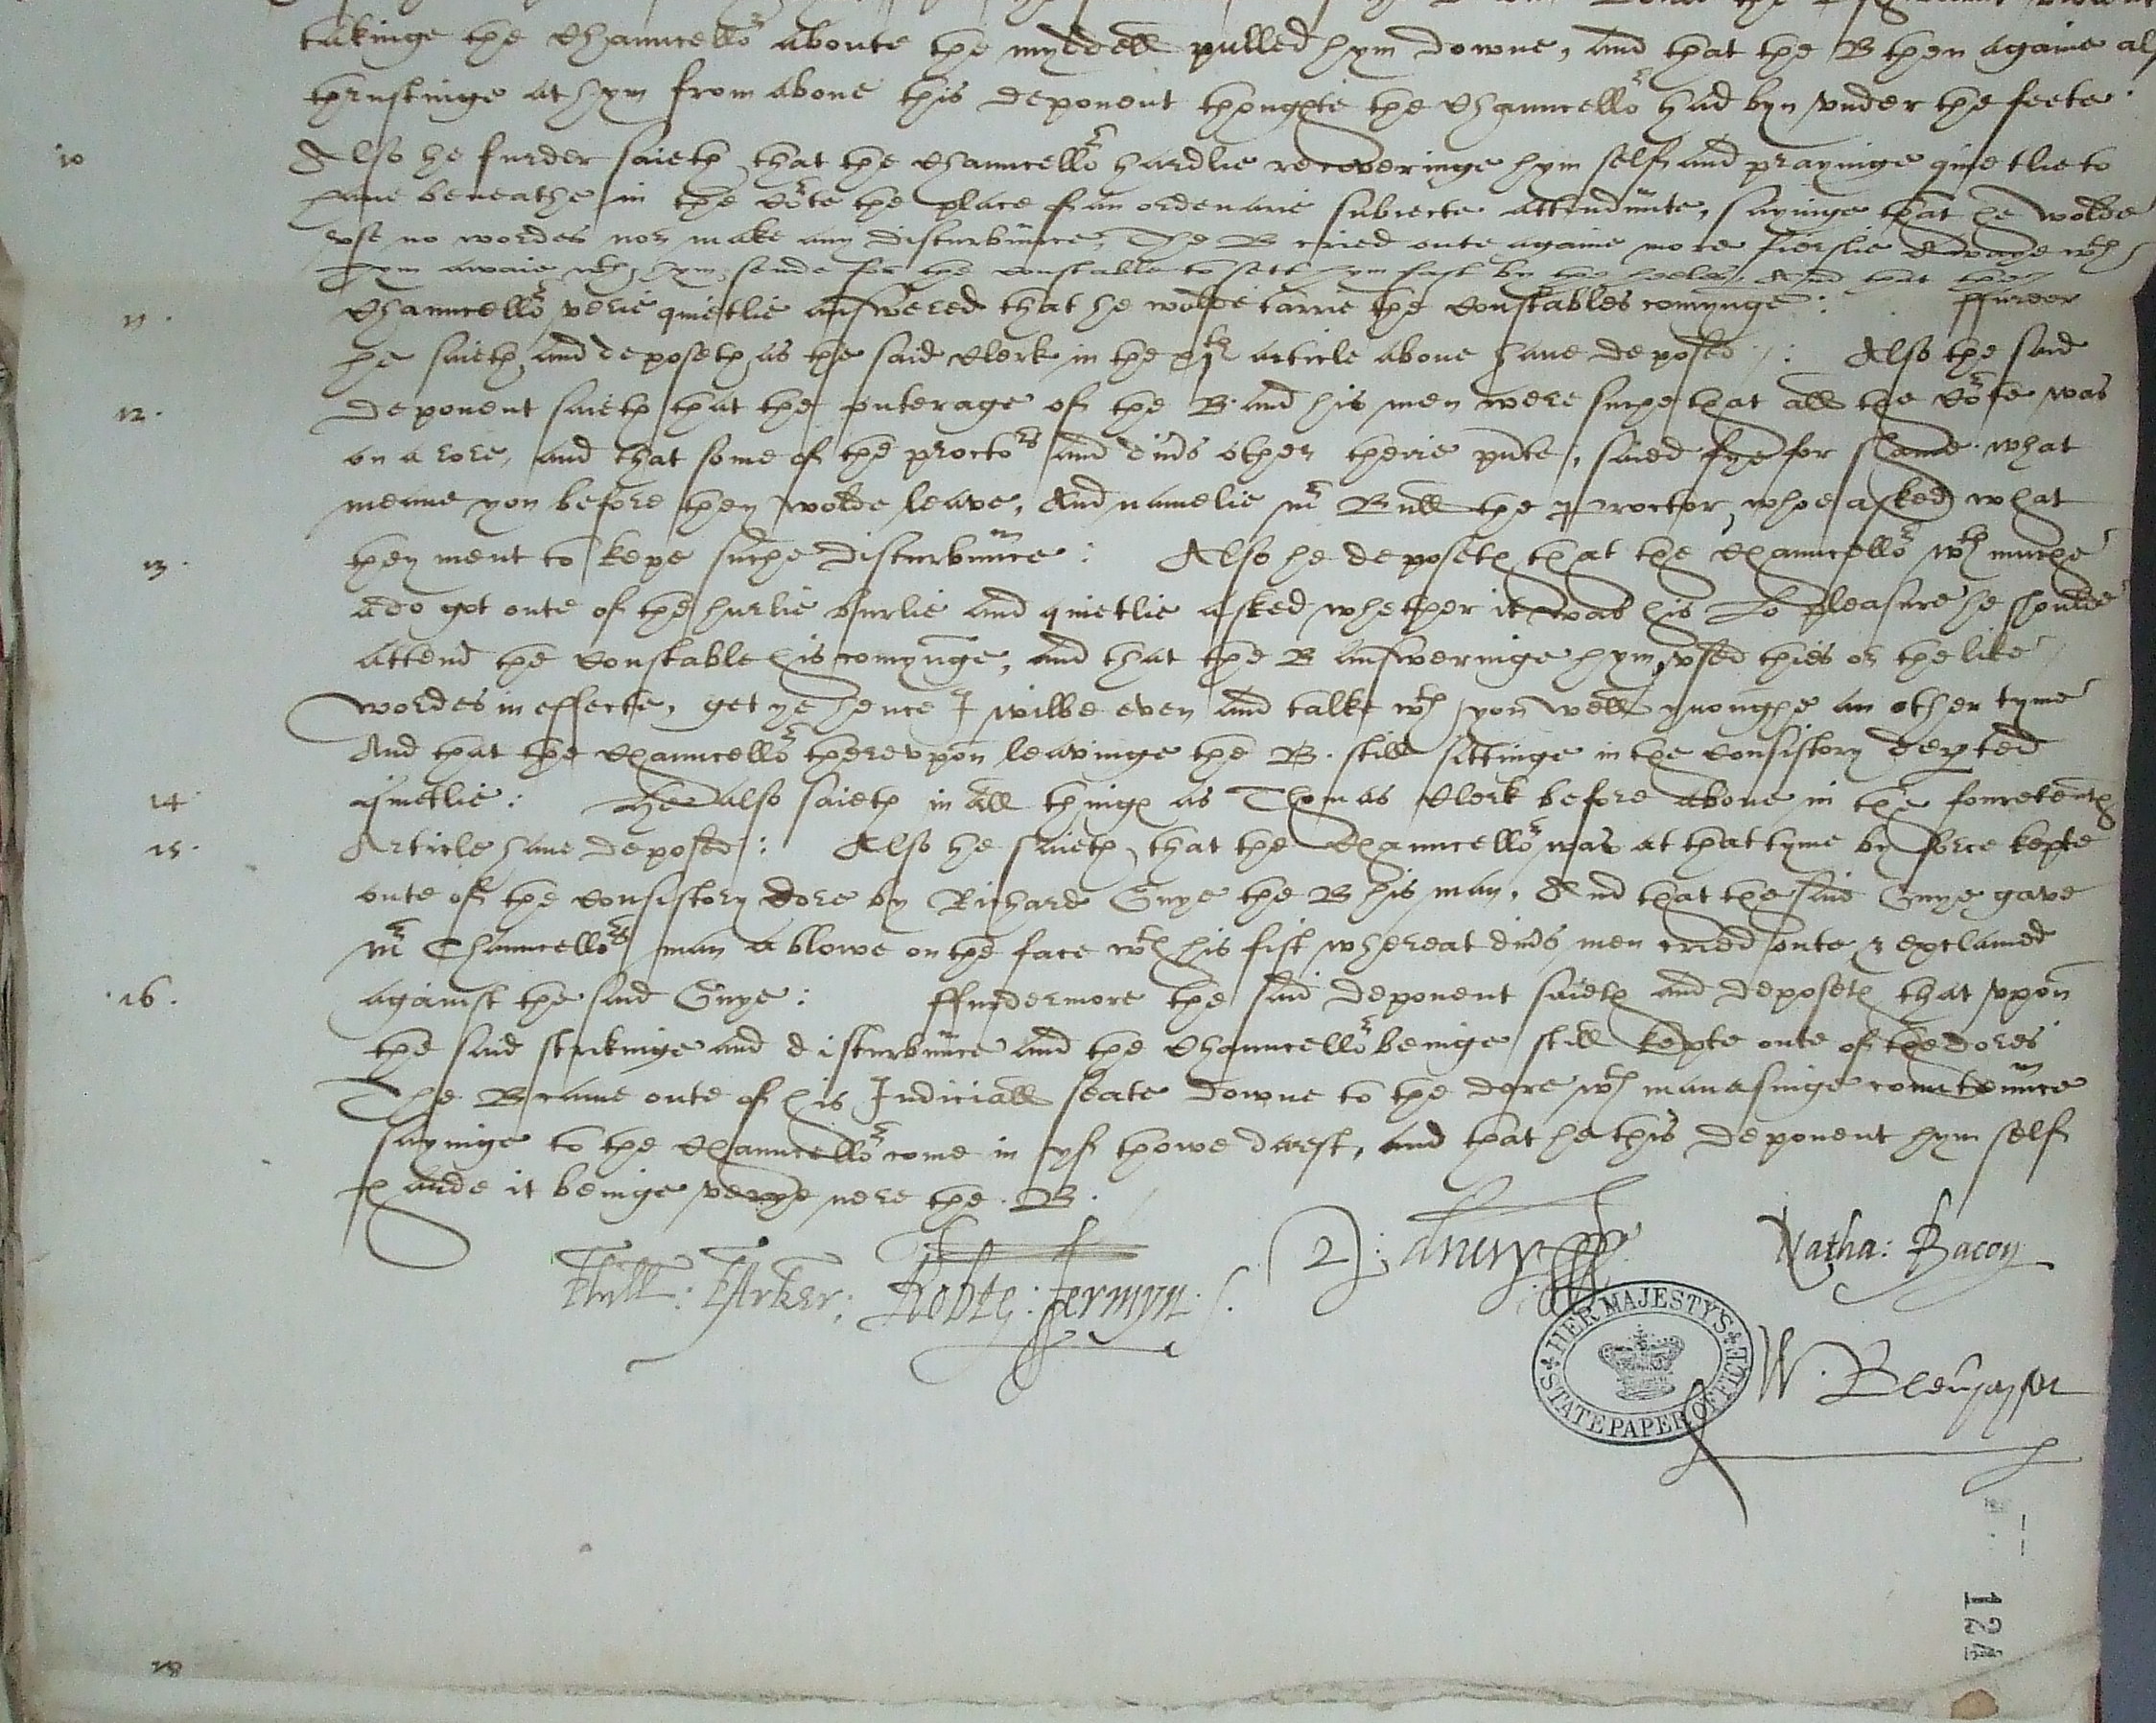 takinge the Chauncellor aboute the myddell pulled hym downe, and that the B then againe
thrustinge at hym from above this deponent thoughte the Chauncellor had byn under the feete
10 Also he furder saieth that the Chauncellor hardlie recoveringe hym self and prayinge quietlie to
have beneathe in the Corte the place of an ordenarie subiecte attendante, sayinge that he wolde
use no wordes nor make any disturbance, The B cried oute againe more fierslie awaye wth
hym awaie wth hym, sende for the constable to sett hym fast by the heeles, And that the
11 Chauncellor verie quietlie answered that he wolde tarrie the constables comynge : ffurder
he saieth and deposeth as the said Clerk in the article above have deposed : Also the said
12 deponent saieth that the outerage of the B and his men were suche that all the Corte was
on a rore, and that some of the proctors and divs other there pnte, saied fye for shame what
meane you before they wolde leave, And namelie mr Bull the Proctor, whoe asked what
13 they ment to kepe suche disturbance : Also he deposeth that the Chauncellor wth muche
ado got oute of the hurlie burlie and quietlie asked whether it was his Lo pleasure he shoulde
attend the constable his comynge, and that the B answeringe hym, used thies or the like
wordes in effecte, get ye hence I wilbe even and talke wth you well ynoughe an other tyme
And that the Chauncellor thereupon leavinge the B. still sittinge in the consistory depted
14 quietlie : He also saieth in all things as Thomas Clerk before above in the fouretenth
15 Article have deposed : Also he saieth, that the Chauncellor was at that tyme by force kepte
oute of the consistory dore by Richard Guye the B his man, And that the said Guye gave
mr Chauncellors man a blowe on the face wth his fist whereat divs men cried oute & exclamed
16 against the said Guye : ffurdermore the said deponent saieth and deposeth that upon
the said strikinge and disturbance and the Chauncellor beinge still kepte oute of the dores
The B came oute of his Judiciall seate downe to the dore wth manasinge countenance
sayinge to the Chauncellor come in yf thowe darest, and that he this deponent hym self
harde it beinge verye nere the B.
Phyll: Parker: Robte: Jermyn. Drury Natha: Bacon
W. Blenhayset
HER MAJESTY'S STATE PAPER OFFICE
124
18